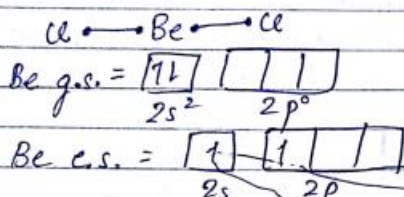 Cl — Be — Cl
Be g.s. = 1↓
2s² 2p⁰
Be e.s. = 1 1
2s 2p